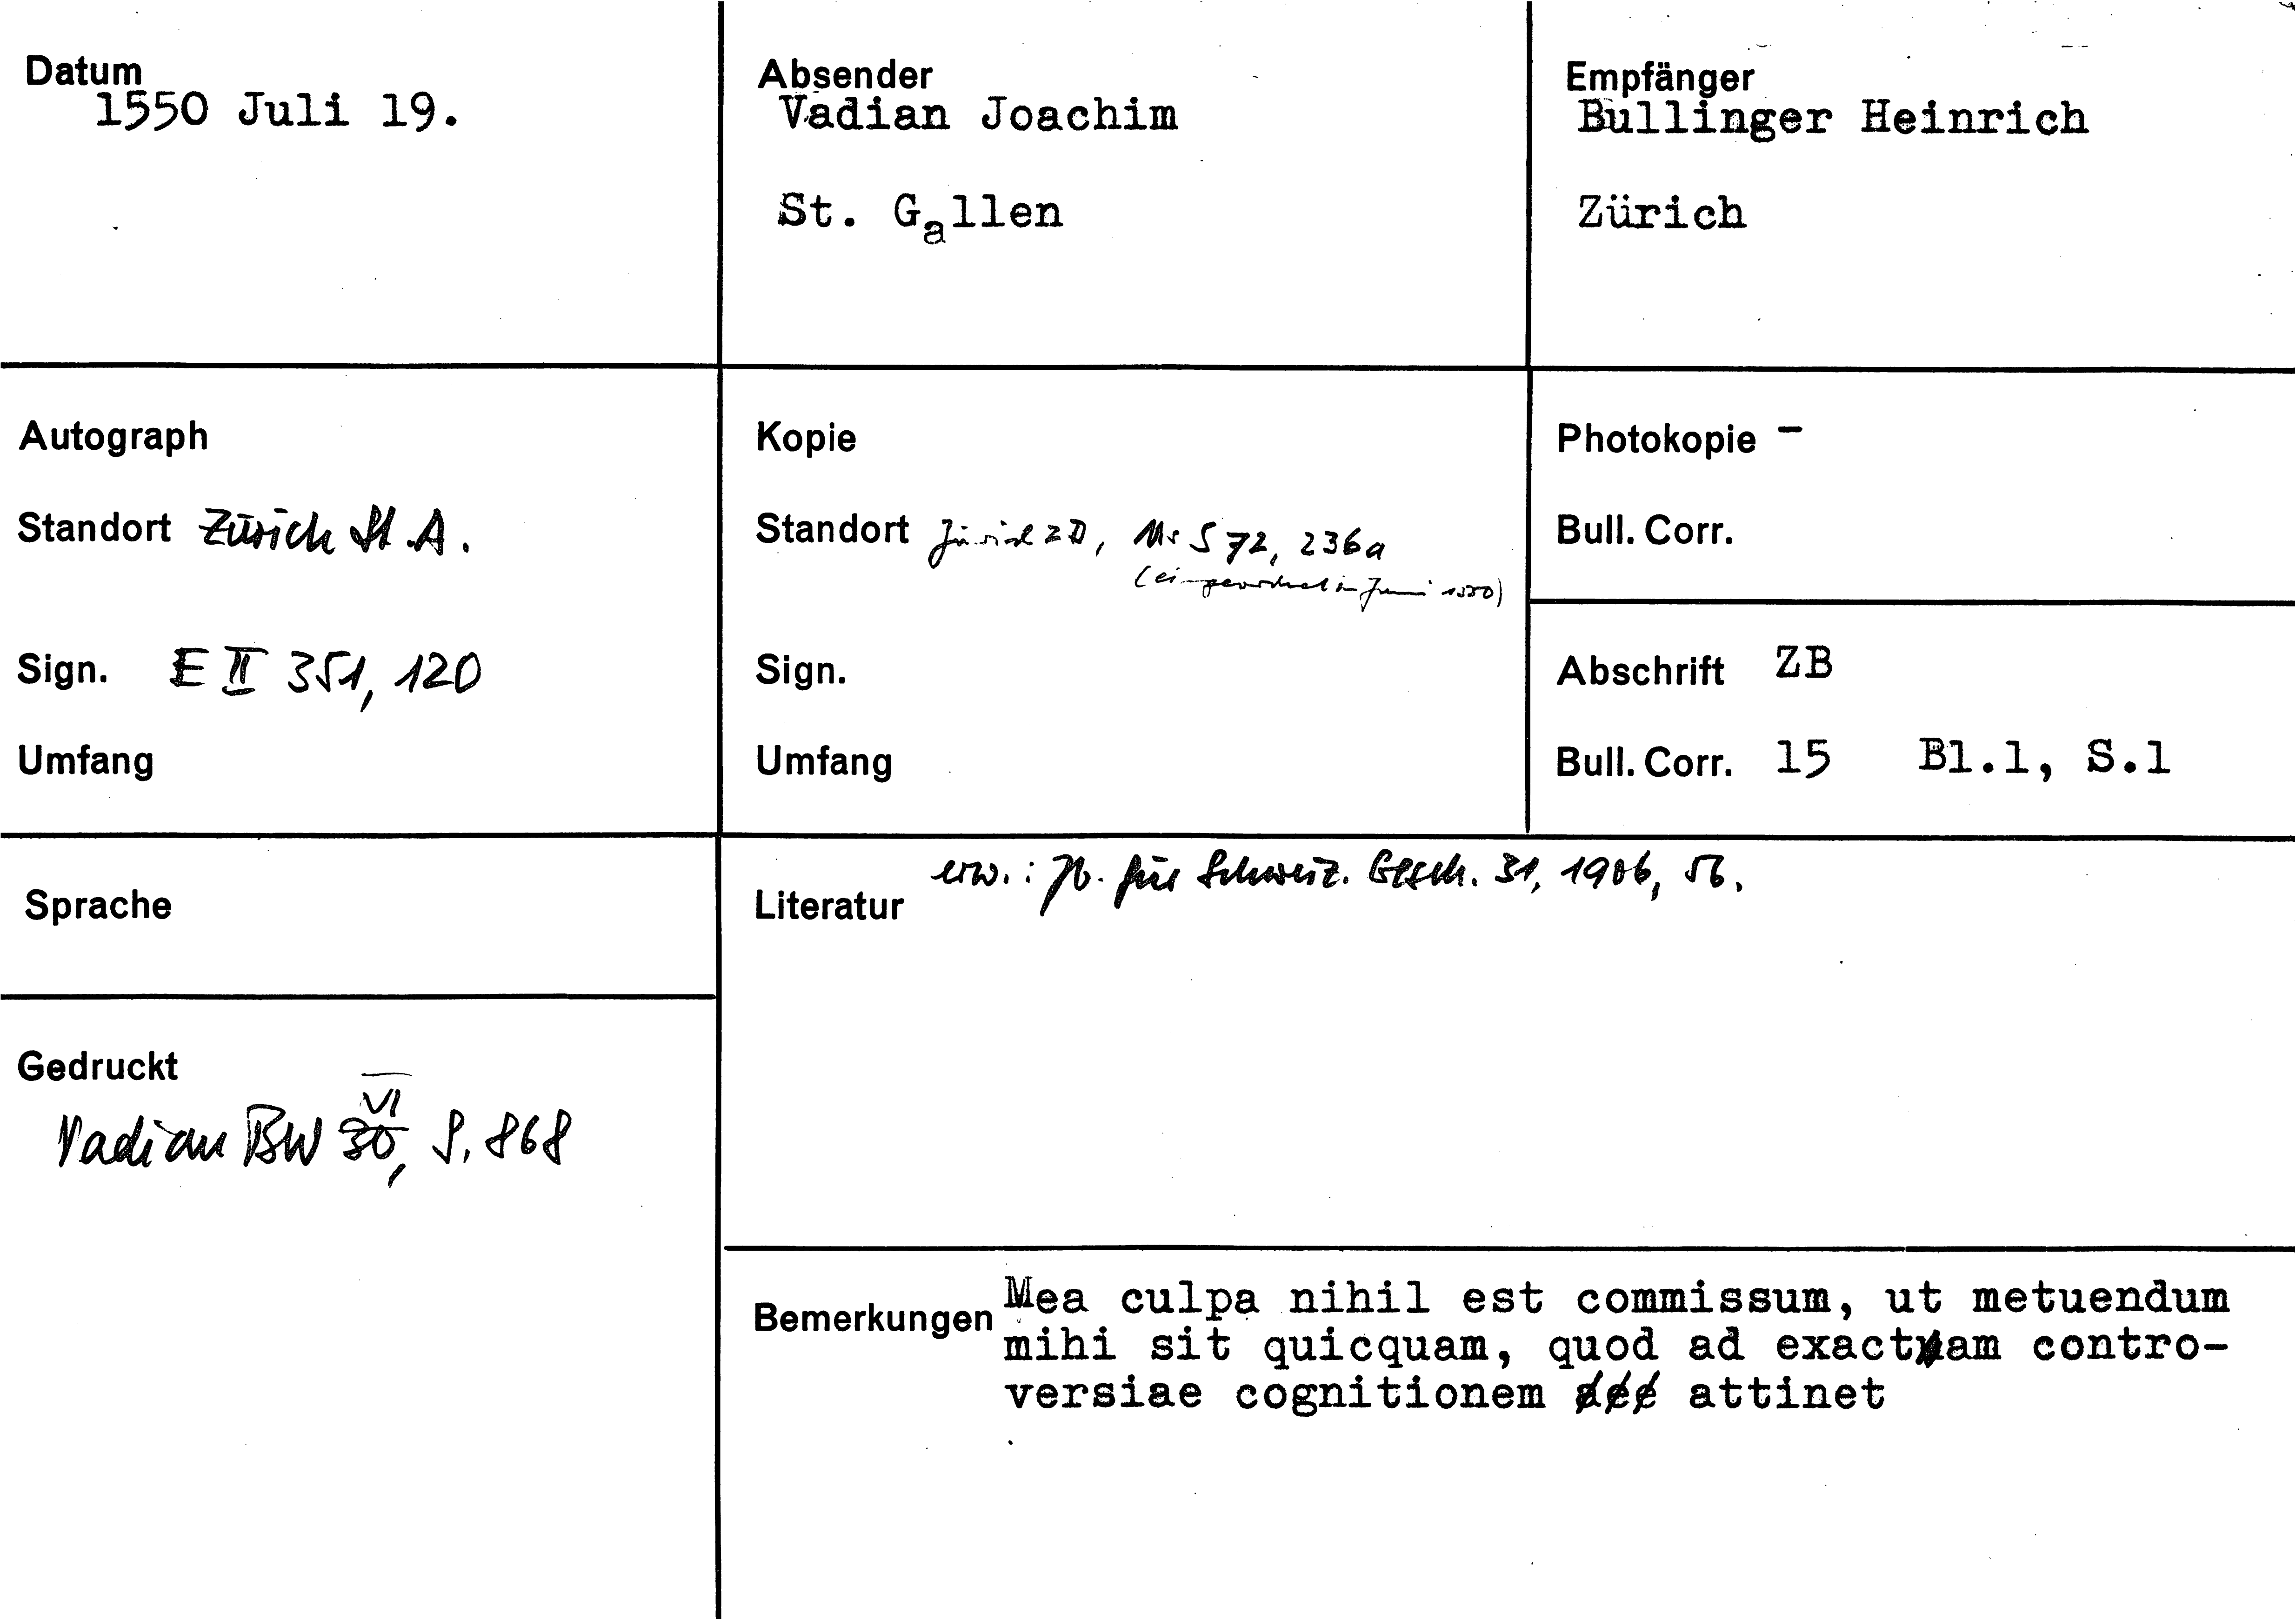 Datum
1550 Juli 19.
Absender
Vadian Joachim
St. Gallen
Empfänger
Bullinger Heinrich
Zürich
Autograph
Standort Zürich St.A.
Sign. E II 351, 120
Umfang
Kopie
Standort Zürich ZB, Ms S 72, 236a
(eingeordnet in Juni 1550)
Sign.
Umfang
Photokopie -
Bull. Corr.
Abschrift ZB
Bull. Corr. 15 Bl.1, S.1
Sprache
Literatur erw.: Jb. für Schweiz. Gesch. 31, 1906, 56.
Gedruckt
VI
Vadian BW 30, S. 868
Bemerkungen Mea culpa nihil est commissum, ut metuendum
mihi sit quicquam, quod ad exactam contro-
versiae cognitionem attinet